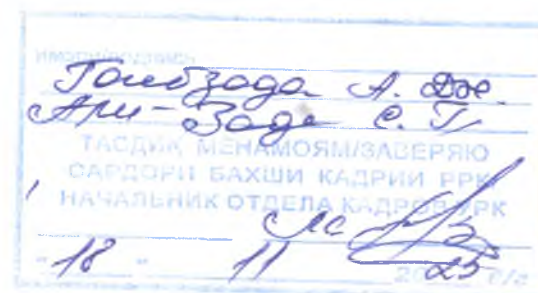 имзои/подпись
Гоибзода А. Дж.
Али-Заде С. Г.
ТАСДИК МЕНАМОЯМ/ЗАВЕРЯЮ
САРДОРИ БАХШИ КАДРИИ РРК
НАЧАЛЬНИК ОТДЕЛА КАДРОВ РРК
"18" 11 2025 г/г